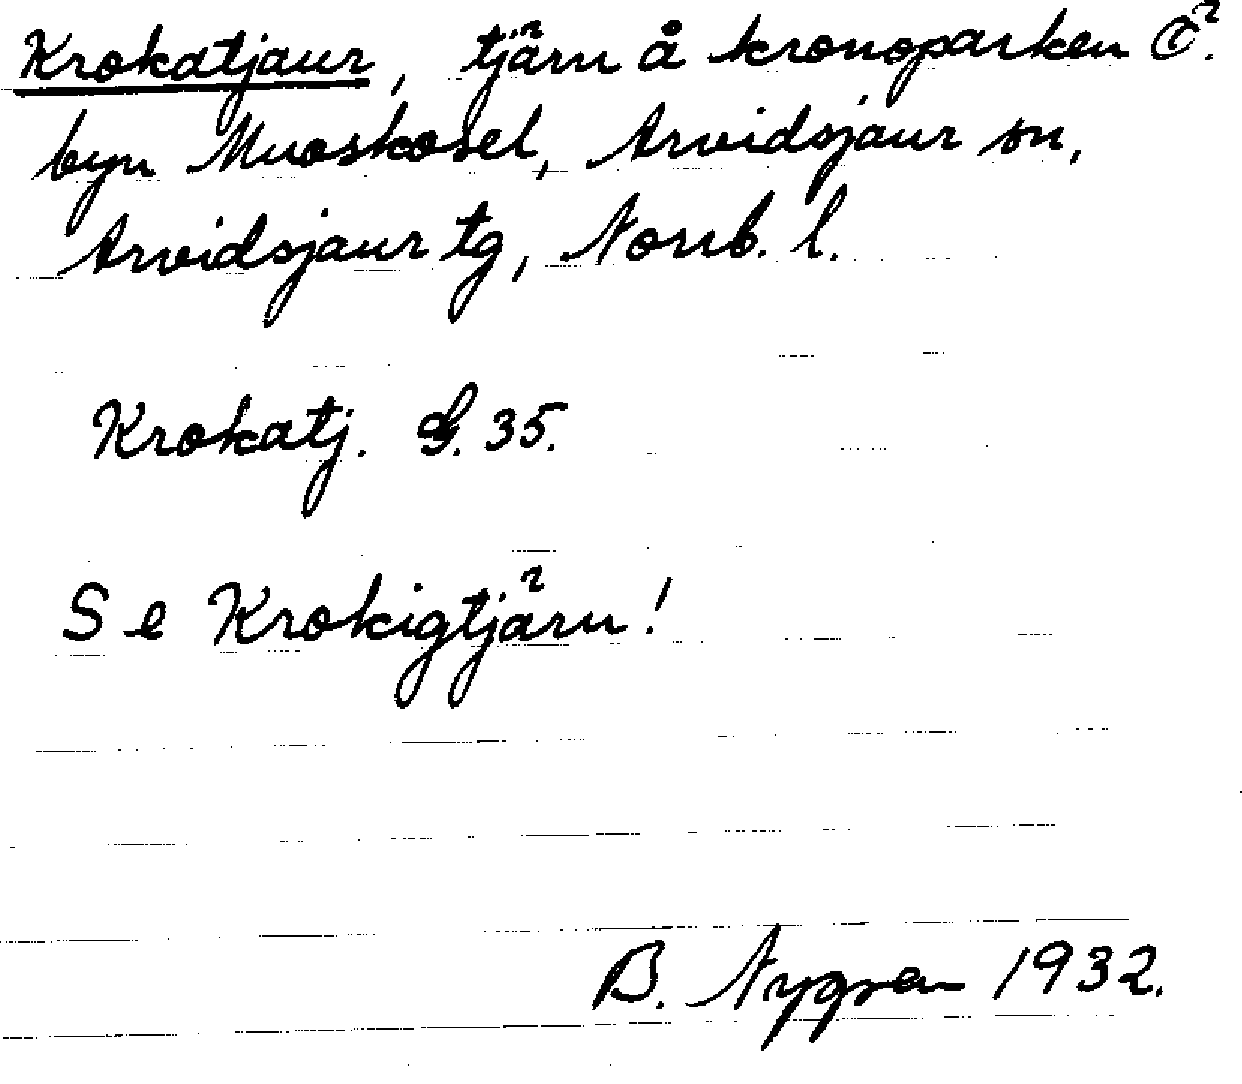 Krokatjaur, tjärn å kronoparken Ö.
byn Muoskosel, Arvidsjaur sn,
Arvidsjaur tg, Norrb. l.
Krokatj. G. 35.
Se Krokigtjärn!
B. Nygren 1932.